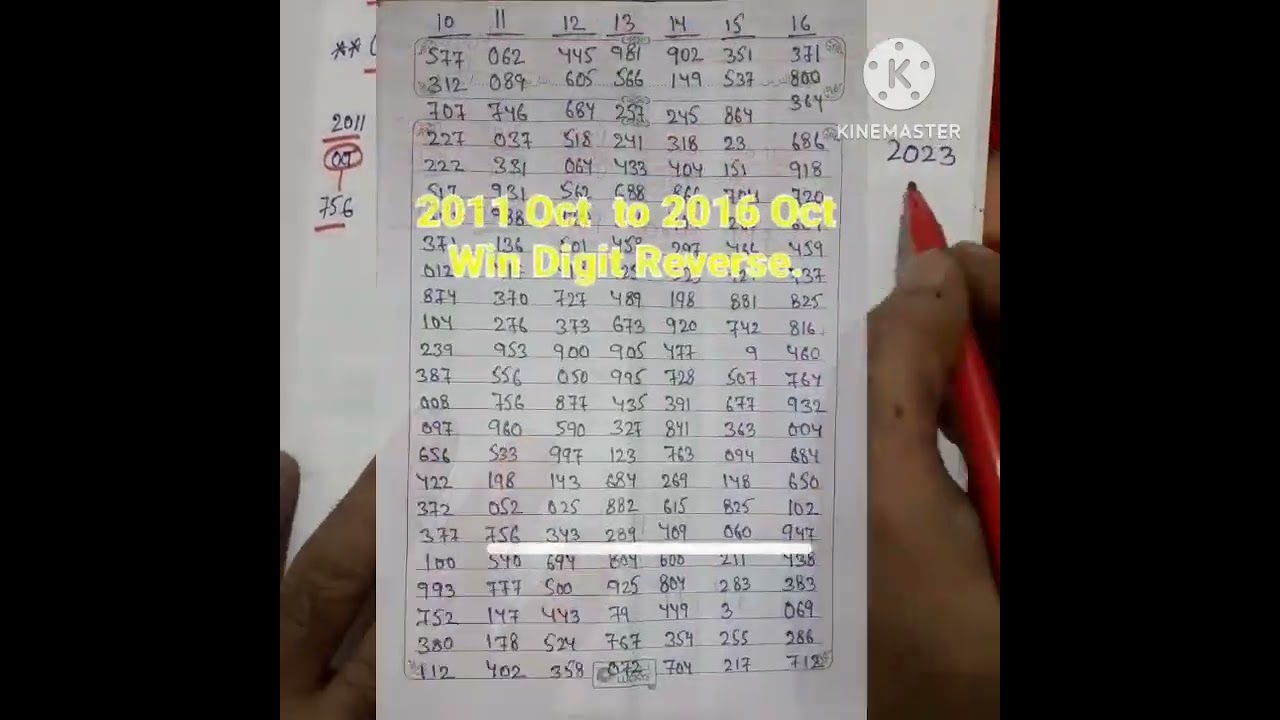 10 11 12 13 14 15 16
577 062 445 981 902 351 371
312 089 605 566 149 537 800
364
707 746 684 257 245 864
KINEMASTER
2011
227 037 518 241 318 23 686
2023
Oct
222 331 064 433 404 151 918
517 931 562 688 704 720
756
2011 Oct to 2016 Oct
136 459
Win Digit Reverse.
012
874 370 727 489 198 881 825
104 276 373 673 920 742 816
239 953 900 905 477 9 460
387 556 050 995 728 507 764
008 756 877 435 391 677 932
097 960 590 327 841 363 004
656 533 997 123 763 094 684
422 198 143 684 269 148 650
372 052 025 882 615 825 102
377 756 343 289 409 060 947
100 540 694 804 600 211 438
993 777 500 925 804 283 383
752 147 443 79 449 3 069
380 178 524 767 354 255 286
112 402 358 072 704 217 712